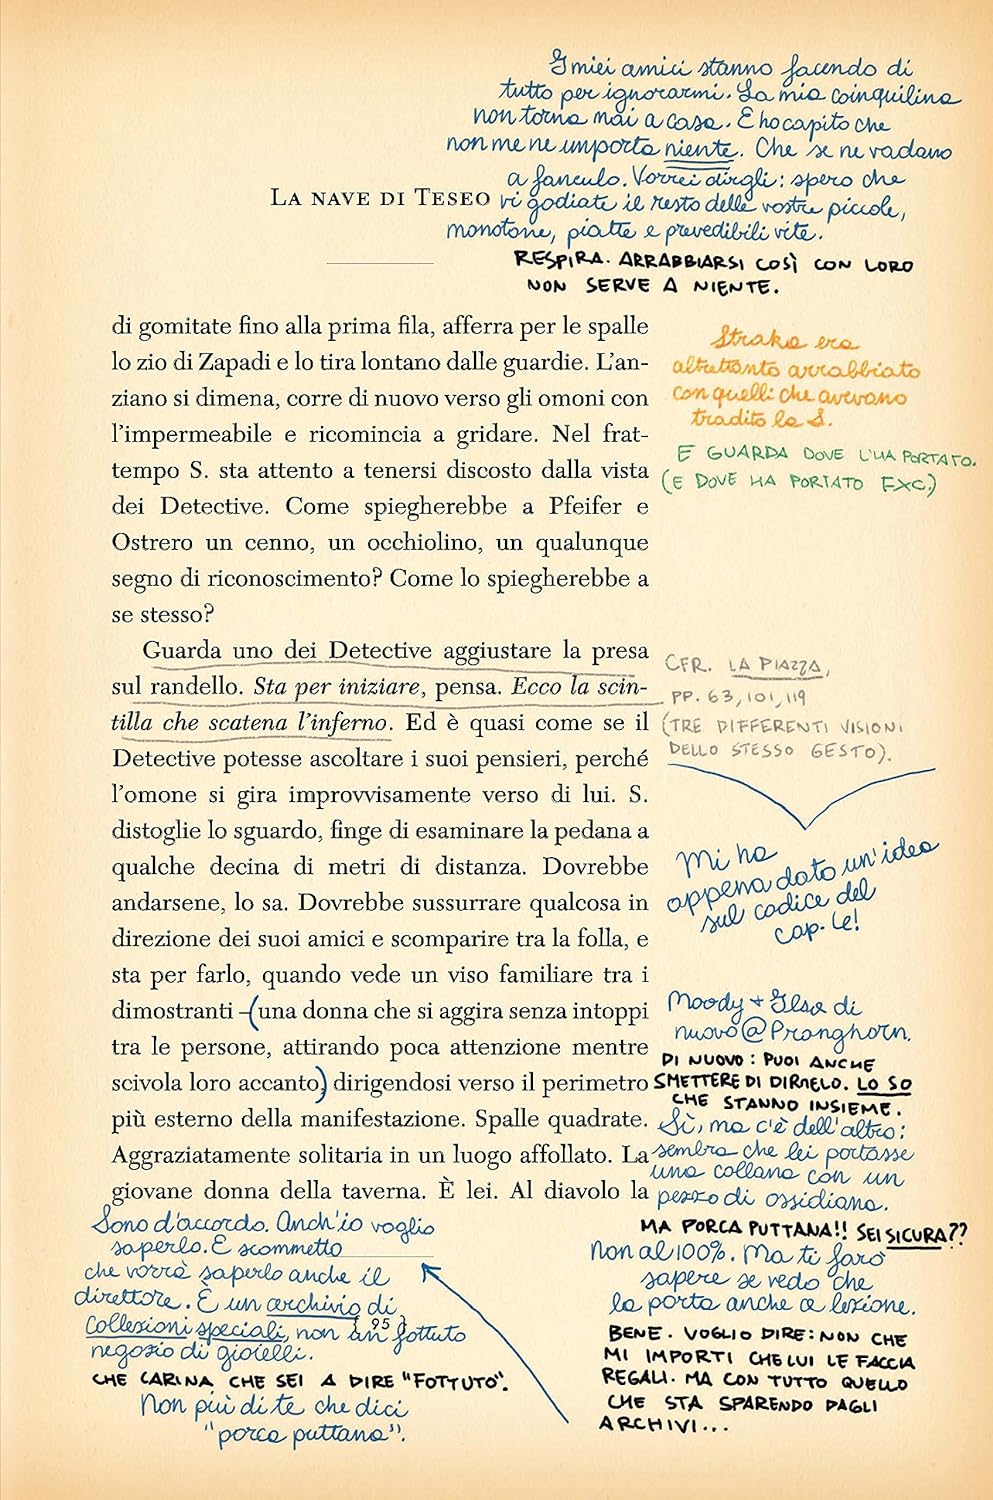 I miei amici stanno facendo di
tutto per ignorarmi. La mia coinquilina
non torna mai a casa. E ho capito che
non me ne importa niente. Che se ne vadano
a fanculo. Vorrei dirgli: spero che
vi godiate il resto delle vostre piccole,
monotone, piatte e prevedibili vite.
LA NAVE DI TESEO
RESPIRA. ARRABBIARSI COSÌ CON LORO
NON SERVE A NIENTE.
di gomitate fino alla prima fila, afferra per le spalle
lo zio di Zapadi e lo tira lontano dalle guardie. L'an-
ziano si dimena, corre di nuovo verso gli omoni con
l'impermeabile e ricomincia a gridare. Nel frat-
tempo S. sta attento a tenersi discosto dalla vista
dei Detective. Come spiegherebbe a Pfeifer e
Ostrero un cenno, un occhiolino, un qualunque
segno di riconoscimento? Come lo spiegherebbe a
se stesso?
Straka era
altrettanto arrabbiato
con quelli che avevano
tradito la S.
E GUARDA DOVE L'HA PORTATO.
(E DOVE HA PORTATO FXC.)
Guarda uno dei Detective aggiustare la presa
sul randello. Sta per iniziare, pensa. Ecco la scin-
tilla che scatena l'inferno. Ed è quasi come se il
Detective potesse ascoltare i suoi pensieri, perché
l'omone si gira improvvisamente verso di lui. S.
distoglie lo sguardo, finge di esaminare la pedana a
qualche decina di metri di distanza. Dovrebbe
andarsene, lo sa. Dovrebbe sussurrare qualcosa in
direzione dei suoi amici e scomparire tra la folla, e
sta per farlo, quando vede un viso familiare tra i
dimostranti – (una donna che si aggira senza intoppi
tra le persone, attirando poca attenzione mentre
scivola loro accanto,) dirigendosi verso il perimetro
più esterno della manifestazione. Spalle quadrate.
Aggraziatamente solitaria in un luogo affollato. La
giovane donna della taverna. È lei. Al diavolo la
CFR. LA PIAZZA,
PP. 63, 101, 119
(TRE DIFFERENTI VISIONI
DELLO STESSO GESTO).
Mi ha
appena dato un'idea
sul codice del
cap. 6!
Moody + Ilsa di
nuovo @ Pronghorn.
DI NUOVO: PUOI ANCHE
SMETTERE DI DIRMELO. LO SO
CHE STANNO INSIEME.
Sì, ma c'è dell'altro:
sembra che lei portasse
una collana con un
pezzo di ossidiana.
MA PORCA PUTTANA!! SEI SICURA??
Non al 100%. Ma ti farò
sapere se vedo che
la porta anche a lezione.
BENE. VOGLIO DIRE: NON CHE
MI IMPORTI CHE LUI LE FACCIA
REGALI. MA CON TUTTO QUELLO
CHE STA SPARENDO DAGLI
ARCHIVI...
Sono d'accordo. Anch'io voglio
saperlo. E scommetto
che vorrà saperlo anche il
direttore. È un archivio di
collezioni speciali, non un fottuto
negozio di gioielli.
{ 95 }
CHE CARINA CHE SEI A DIRE "FOTTUTO".
Non più di te che dici
"porca puttana".